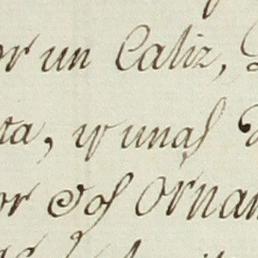 or un Caliz,
ta, y unas
or dos Ornam